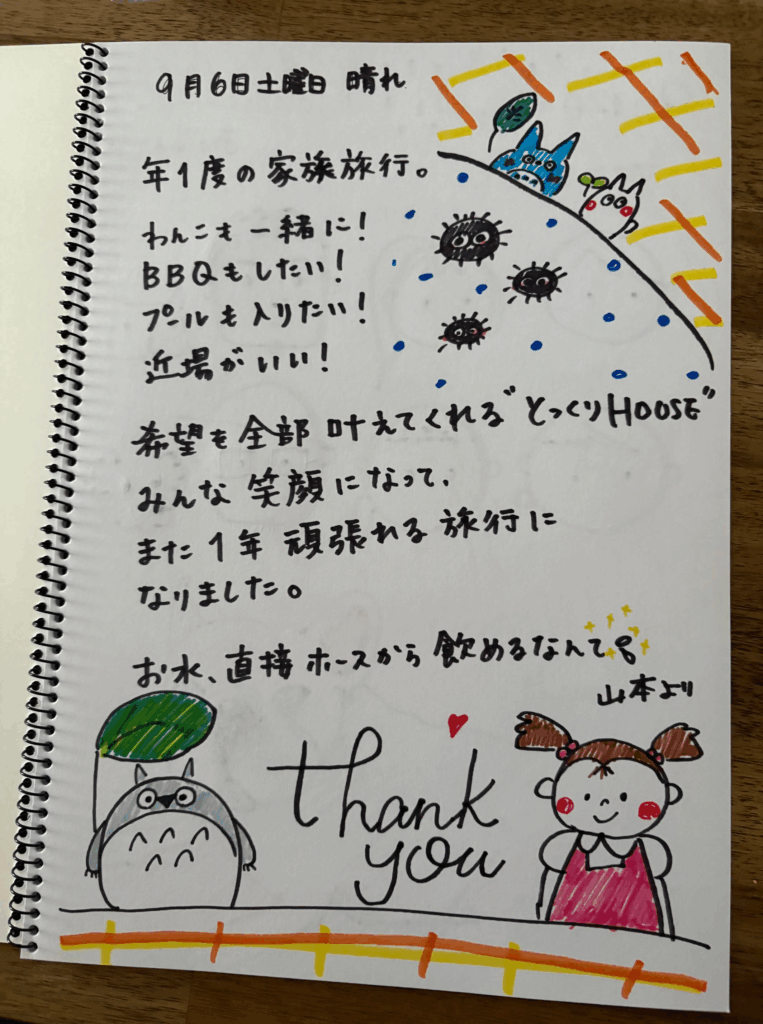 9月6日土曜日 晴れ
年1度の家族旅行。
わんこも一緒に!
BBQもしたい!
プールも入りたい!
近場がいい!
希望を全部叶えてくれる"とっくりHOOSE"
みんな笑顔になって、
また1年頑張れる旅行に
なりました。
お水、直接ホースから飲めるなんて
山本より
thank
you